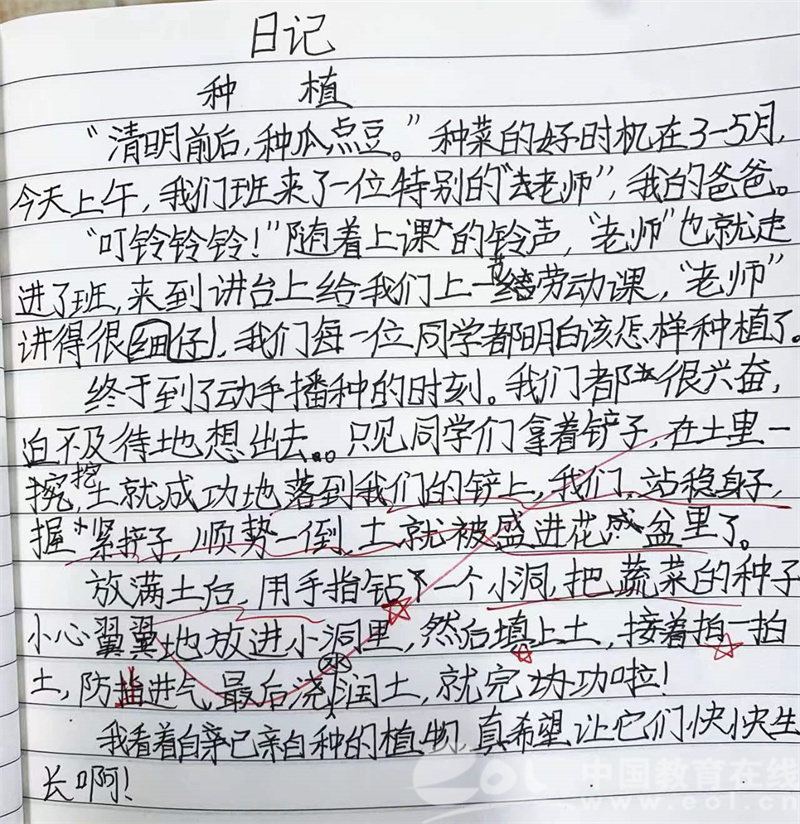 日记
种 植
“清明前后，种瓜点豆。”种菜的好时机在3-5月，
今天上午，我们班来了一位特别的“老师”，我的爸爸。
“叮铃铃铃！”随着上课的铃声，“老师”也就走
进了班，来到讲台上给我们上一节劳动课，“老师”
讲得很细仔，我们每一位同学都明白该怎样种植了。
终于到了动手播种的时刻。我们都很兴奋，
迫不及待地想出去。只见同学们拿着铲子，在土里一
挖，土就成功地落到我们的铲上，我们站稳身子，
握紧铲子，顺势一倒，土就被盛进花盆里了。
放满土后，用手指钻了一个小洞，把蔬菜的种子
小心翼翼地放进小洞里，然后填上土，接着拍一拍
土，防进气，最后浇水润土，就完功啦！
我看着自己亲自种的植物，真希望让它们快快生
长啊！
eol 中国教育在线
www.eol.cn